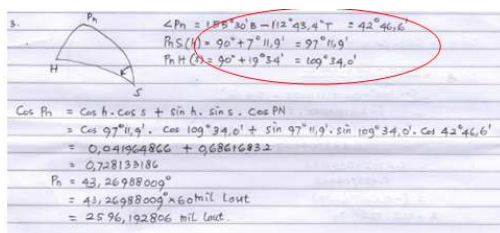 3.
Pn
H
S
∠Pn = 155°30'B - 112°43,4'T = 42°46,6'
PnS(h) = 90° + 7°11,9' = 97°11,9'
PnH(s) = 90° + 19°34' = 109°34,0'
Cos Pn = Cos h. cos s + sin h. sin s. cos PN
= Cos 97°11,9'. Cos 109°34,0' + sin 97°11,9'. sin 109°34,0'. Cos 42°46,6'
= 0,041964866 + 0,68616832
= 0,728133186
Pn = 43,26988009°
= 43,26988009° x 60 mil laut
= 2596,192806 mil laut.